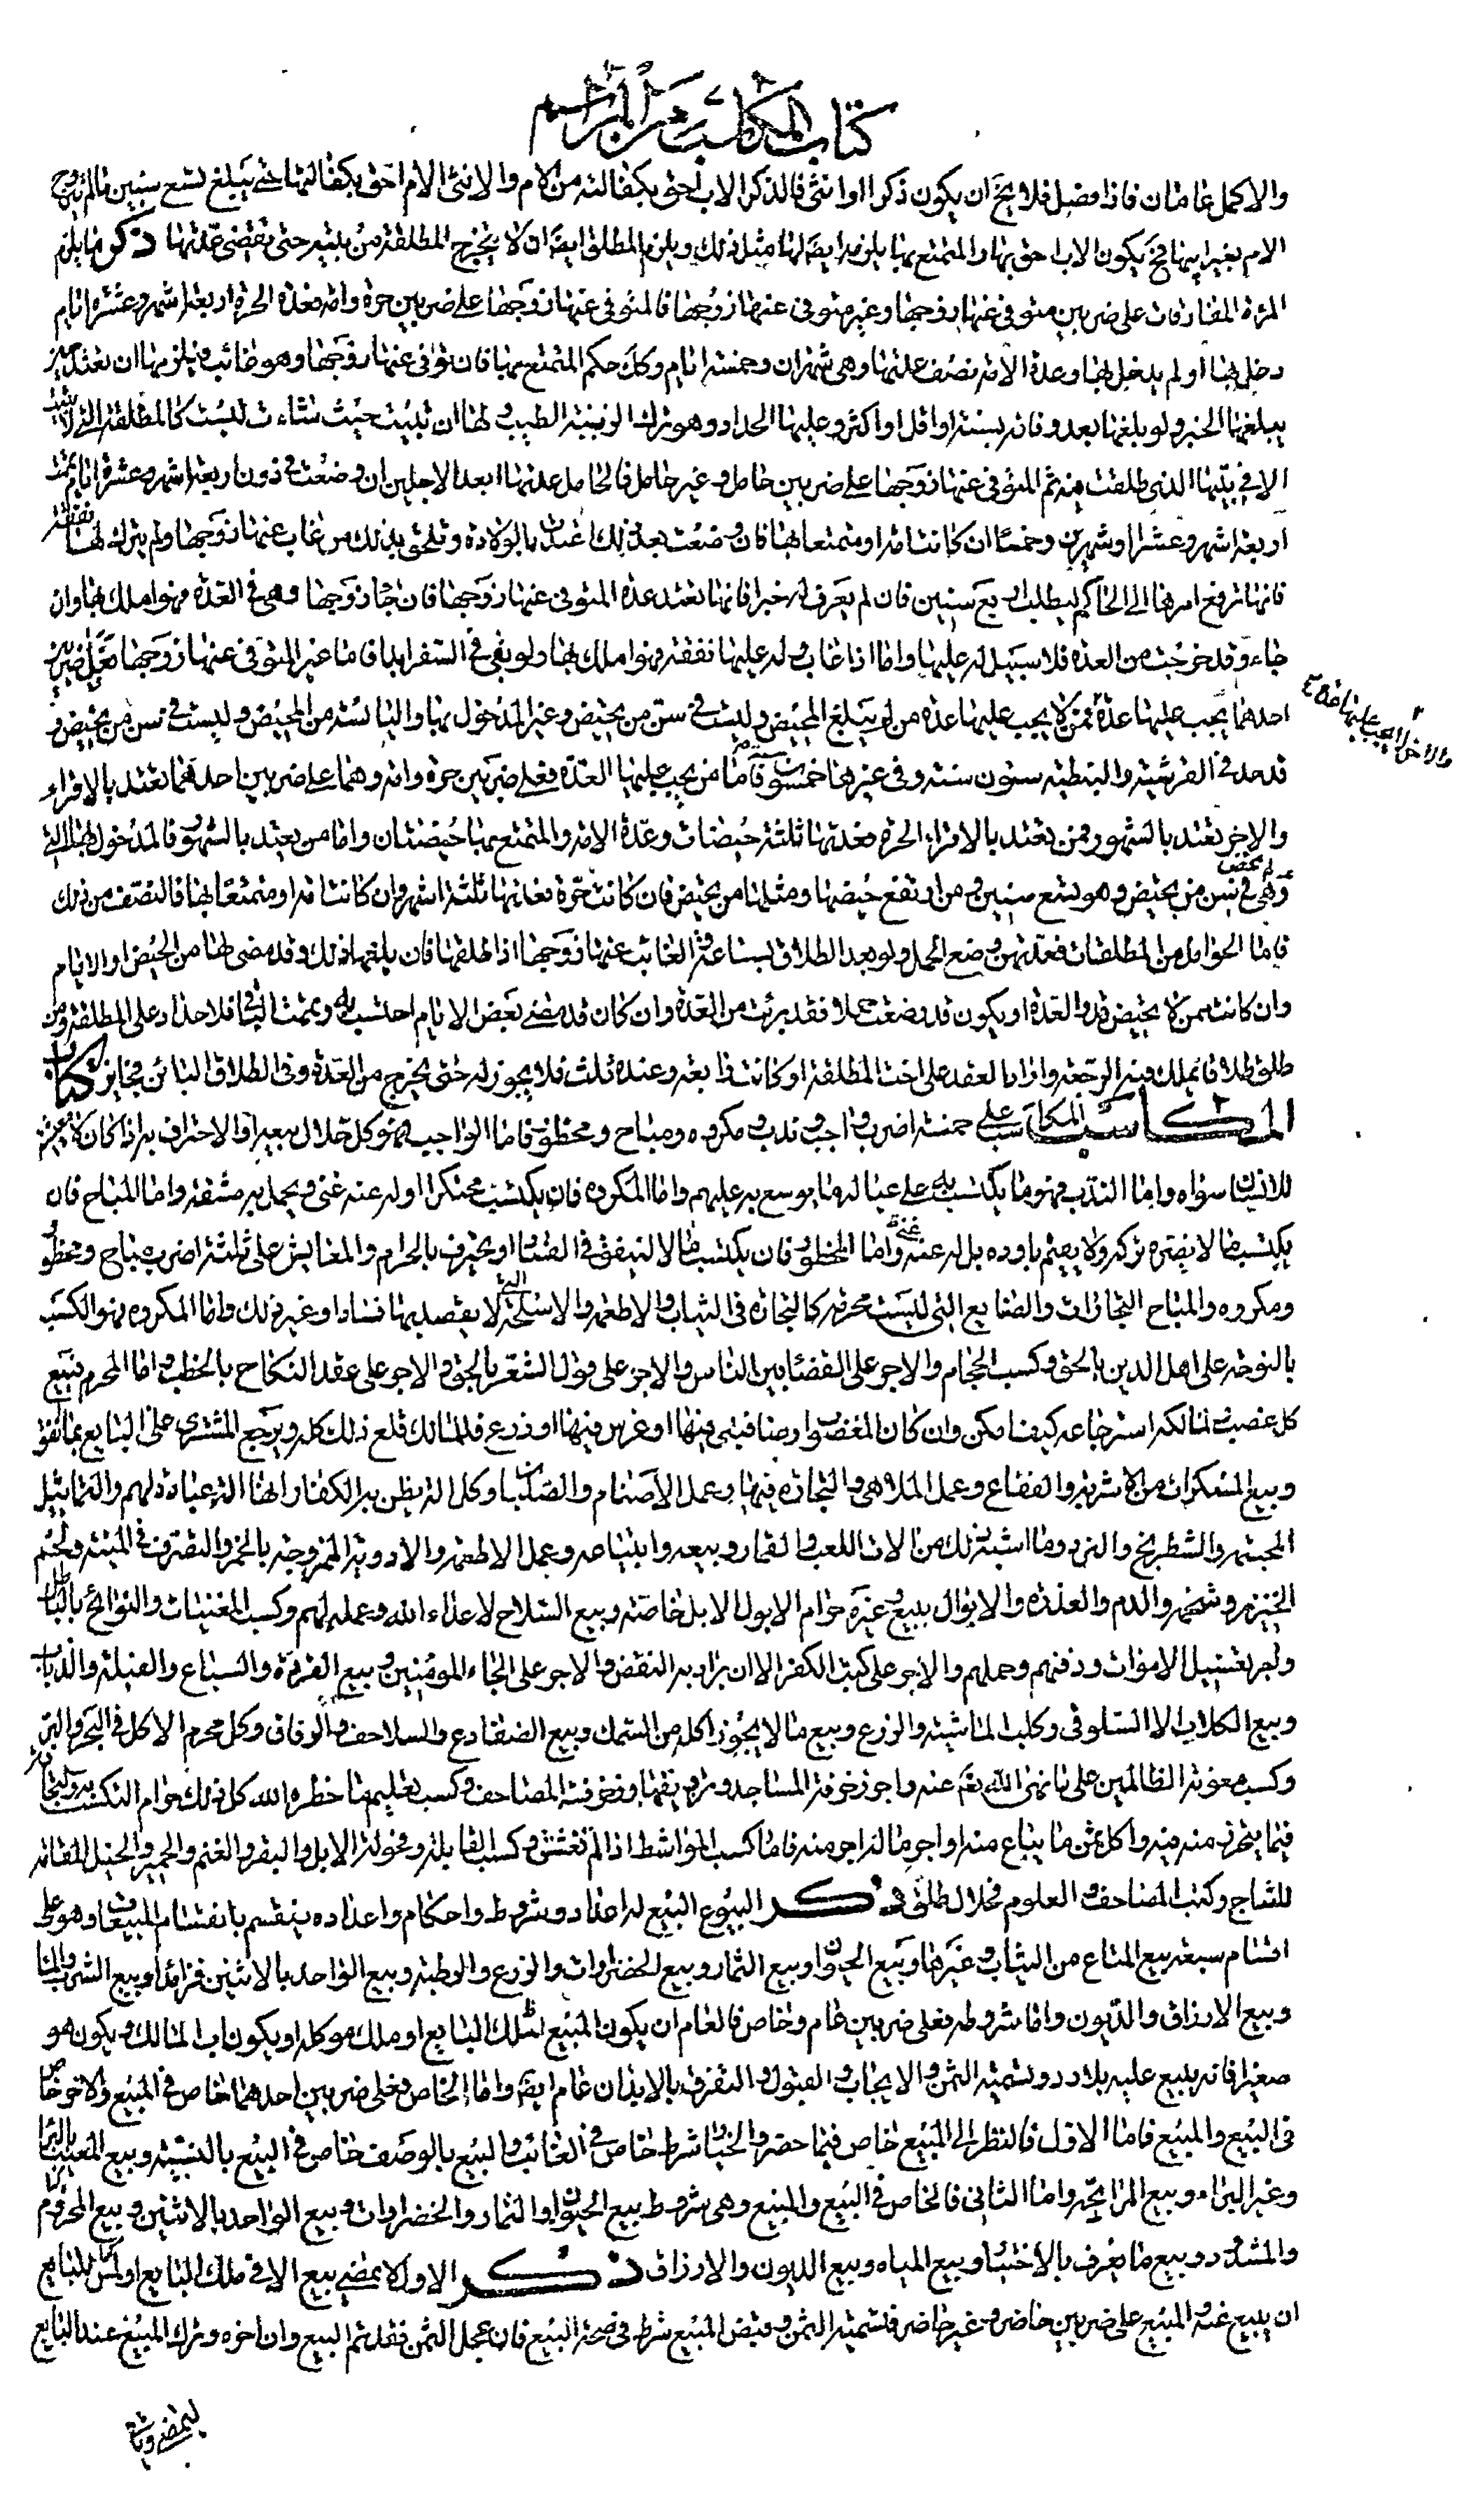 كتاب المكاسب من المراسم
والاكمل عامان فاذا فصل فلا يخ ان يكون ذكرا او انثى فالذكر الاب احق بكفالته من الام والانثى الام احق بكفالتها حتى يبلغ تسع سنين ما لم يتزوج
الام بغير ابيها فح يكون الاب احق بها والمتمتع بها يلزمه ايضا لها مثل ذلك ويلزم المطلق ايضا ان لا يخرج المطلقة من بيته حتى تقضى عدتها ذكر ما يلزم
المرءة المفارقات على ضربين متوفى عنها زوجها وغير متوفى عنها زوجها فالمتوفى عنها زوجها على ضربين حرة وامة فعدة الحرة اربعة اشهر وعشرة ايام
دخل بها او لم يدخل بها وعدة الامة نصف عدتها وهي شهران وخمسة ايام وكك حكم المتمتع بها فان توفى عنها زوجها وهو غائب فيلزمها ان تعتد حين
يبلغها الخبر ولو بلغها بعد وفاته بسنة او اقل او اكثر وعليها الحداد وهو ترك الزينة والطيب ولها ان تبيت حيث شاءت ليست كالمطلقة التي لا تبيت
الا في بيتها الذي طلقت فيه ثم المتوفى عنها زوجها على ضربين حامل وغير حامل فالحامل عدتها ابعد الاجلين ان وضعت في دون اربعة اشهر وعشرة ايام تمت
اربعة اشهر وعشرا او شهرين وخمسا ان كانت امة او متمتعا بها فان وضعت بعد ذلك اعتدت بالولادة ويلحق بذلك من غاب عنها زوجها ولم يترك لها نفقة
فانها ترفع امرها الى الحاكم ليطلبه اربع سنين فان لم يعرف له خبرا فانها تعتد عدة المتوفى عنها زوجها فان جاء زوجها وهي في العدة فهو املك بها وان
جاء وقد خرجت من العدة فلا سبيل له عليها واما اذا غاب وله عليها نفقة فهو املك بها ولو بقي في السفر ابدا فاما غير المتوفى عنها زوجها فعلى ضربين
احدهما يجب عليها عدة فمن لا يجب عليها عدة من لم يبلغ المحيض وليست في سن من يحيض وغير المدخول بها واليائسة من المحيض وليست في سن من يحيض و
والاخر لا يجب عليها عدة
قد حد في القرشية والنبطية ستون سنة وفي غيرها خمسون سنة فاما من يجب عليها العدة فعلى ضربين حرة وامة وهما على ضربين احدهما تعتد بالاقراء
والاخر تعتد بالشهور فمن تعتد بالاقراء الحرة فعدتها ثلثة حيضات وعدة الامة والمتمتع بها حيضتان واما من يعتد بالشهور فالمدخول بها التي
لم تحض
وهي في سن من يحيض وهو تسع سنين ومن ارتفع حيضها ومثلها من يحيض فان كانت حرة فعدتها ثلثة اشهر وان كانت امة او متمتعا بها فالنصف من ذلك
فاما الحوامل من المطلقات فعدتهن وضع الحمل ولو بعد الطلاق بساعة والغائب عنها زوجها اذا طلقها فان بلغها ذلك وقد مضى لها من الحيض او الايام
وان كانت ممن لا يحيض قدر العدة او يكون قد وضعت حملا فقد برئت من العدة وان كان قد مضى بعض الايام احتسب به وتممت الباقي فلا حداد على المطلقة ومن
طلق طلاقا يملك فيه الرجعة واراد العقد على اخت المطلقة او كانت رابعة وعنده ثلث فلا يجوز له حتى يخرج من العدة وفي الطلاق البائن فجايز كتاب
المكاسب المكاسب على خمسة اضرب واجب وندب ومكروه ومباح ومحظور فاما الواجب فهو كل حلال بيعه او الاحتراف به اذا كان لا معيشة
للانسان سواه واما الندب فهو ما يكتسب به على عياله ما يوسع به عليهم واما المكروه فان يكتسب محتكرا او له عنه غنى ويحمل به مشقة واما المباح فان
يكتسب ما لا يضره تركه ولا يقيم باوده بل له عنه غنى واما المحظور فان يكتسب مالا لينفق في الفساد او يحترف بالحرام والمعايش على ثلثة اضرب مباح ومحظور
ومكروه والمباح التجارات والصنايع التي ليست محرمة كالتجارة في الثياب والاطعمة والاسلحة التي لا يقصد بها فسادا وغير ذلك واما المكروه فهو الكسب
بالنوحة على اهل الدين بالحق وكسب الحجام والاجر على القضاء بين الناس والاجر على قول الشعر بالحق والاجر على عقد النكاح بالخطب واما المحرم فبيع
كل غصب لمالكه استرجاعه كيفما امكن وان كان المغصوب ارضا فبنى فيها او غرس فيها او زرع فللمالك قلع ذلك كله ويرجع المشتري على البايع بما انفق
وبيع المسكرات من الاشربة والفقاع وعمل الملاهي والتجارة فيها وعمل الاصنام والصلبان وكل الة يظن بها الكفار انها الة عبادة لهم والتماثيل
المجسمة والشطرنج والنرد وما اشبه ذلك من الات اللعب والقمار وبيعه وابتياعه وعمل الاطعمة والادوية الممزوجة بالخمر والتصرف في الميتة ولحم
الخنزير وشحمه والدم والعذرة والابوال ببيع وغيره حرام الا بول الابل خاصة وبيع السلاح لاعداء الله وعمله لهم وكسب المغنيات والنوائح بالباطل
واجر تغسيل الاموات ودفنهم وحملهم والاجر على كتب الكفر الا ان يراد به النقض والاجر على هجاء المومنين وبيع القردة والسباع والفيلة والذباب
وبيع الكلاب الا السلوقي وكلب الماشية والزرع وبيع ما لا يجوز اكله من السمك وبيع الضفادع والسلاحف والرقاق وكل محرم الاكل في البحر والبر
وكسب معونة الظالمين على ما نهى الله تع عنه واجر زخرفة المساجد وتزويقها وزخرفة المصاحف وكسب تعليم ما حظره الله كل ذلك حرام التكسب به والتجارة
فيما يتجر فيه منه واكل ثمن ما يباع منه او اجر ما له اجر منه فاما كسب المواشط اذا لم تغشش وكسب القابلة وفحولة الابل والبقر والغنم والحمير والخيل المقامة
للنتاج وكتب المصاحف والعلوم فحلال طلق ذكر البيوع البيع له اعداد وشروط واحكام واعداده ينقسم بانقسام المبيعات وهو على
اقسام سبعة بيع المتاع من الثياب وغيرها وبيع الحيوان وبيع الثمار وبيع الخضراوات والزرع والرطبة وبيع الواحد بالاثنين فزائدا وبيع الشرب والماء
وبيع الارزاق والديون واما شروطه فعلى ضربين عام وخاص فالعام ان يكون المبيع ملك البايع او ملك موكله او يكون اب المالك ويكون هو
صغيرا فانه يبيع عليه بلا رد وتسمية الثمن والايجاب والقبول والتفرق بالابدان عام ايضا واما الخاص فعلى ضربين احدهما خاص في المبيع والاخر خاص
في البيع والمبيع فاما الاول فالنظر الى المبيع خاص فيما حضر والخيار شرط خاص في الغائب والبيع بالوصف خاص في البيع بالنسية وبيع المعيب بالبراءة
وغير البراء وبيع المرابحة واما الثاني فالخاص في البيع والمبيع وهي شروط بيع الحيوان والثمار والخضراوات وبيع الواحد بالاثنين وبيع المحزوم
والمشدد وبيع ما يعرف بالاختبار وبيع المياه وبيع الديون والارزاق ذكر الاول لا يمضى بيع الا في ملك البايع او لمن للبايع
ان يبيع عنه والمبيع على ضربين حاضر وغير حاضر فتسمية الثمن وقبض المبيع شرط في صحة البيع فان عجل الثمن فقد تم البيع وان اخره وترك المبيع عند البايع